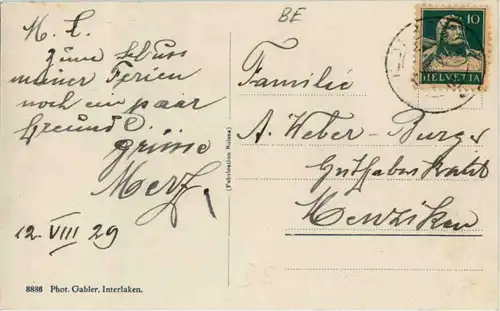 M. L.
zum Schluss
meiner Ferien
noch ein paar
freundl.
Grüsse
Merz
12. VIII 29
8886 Phot. Gabler, Interlaken.
(Fabrication Suisse)
BE
10
HELVETIA
Familie
A. Weber-Burger
Menziken